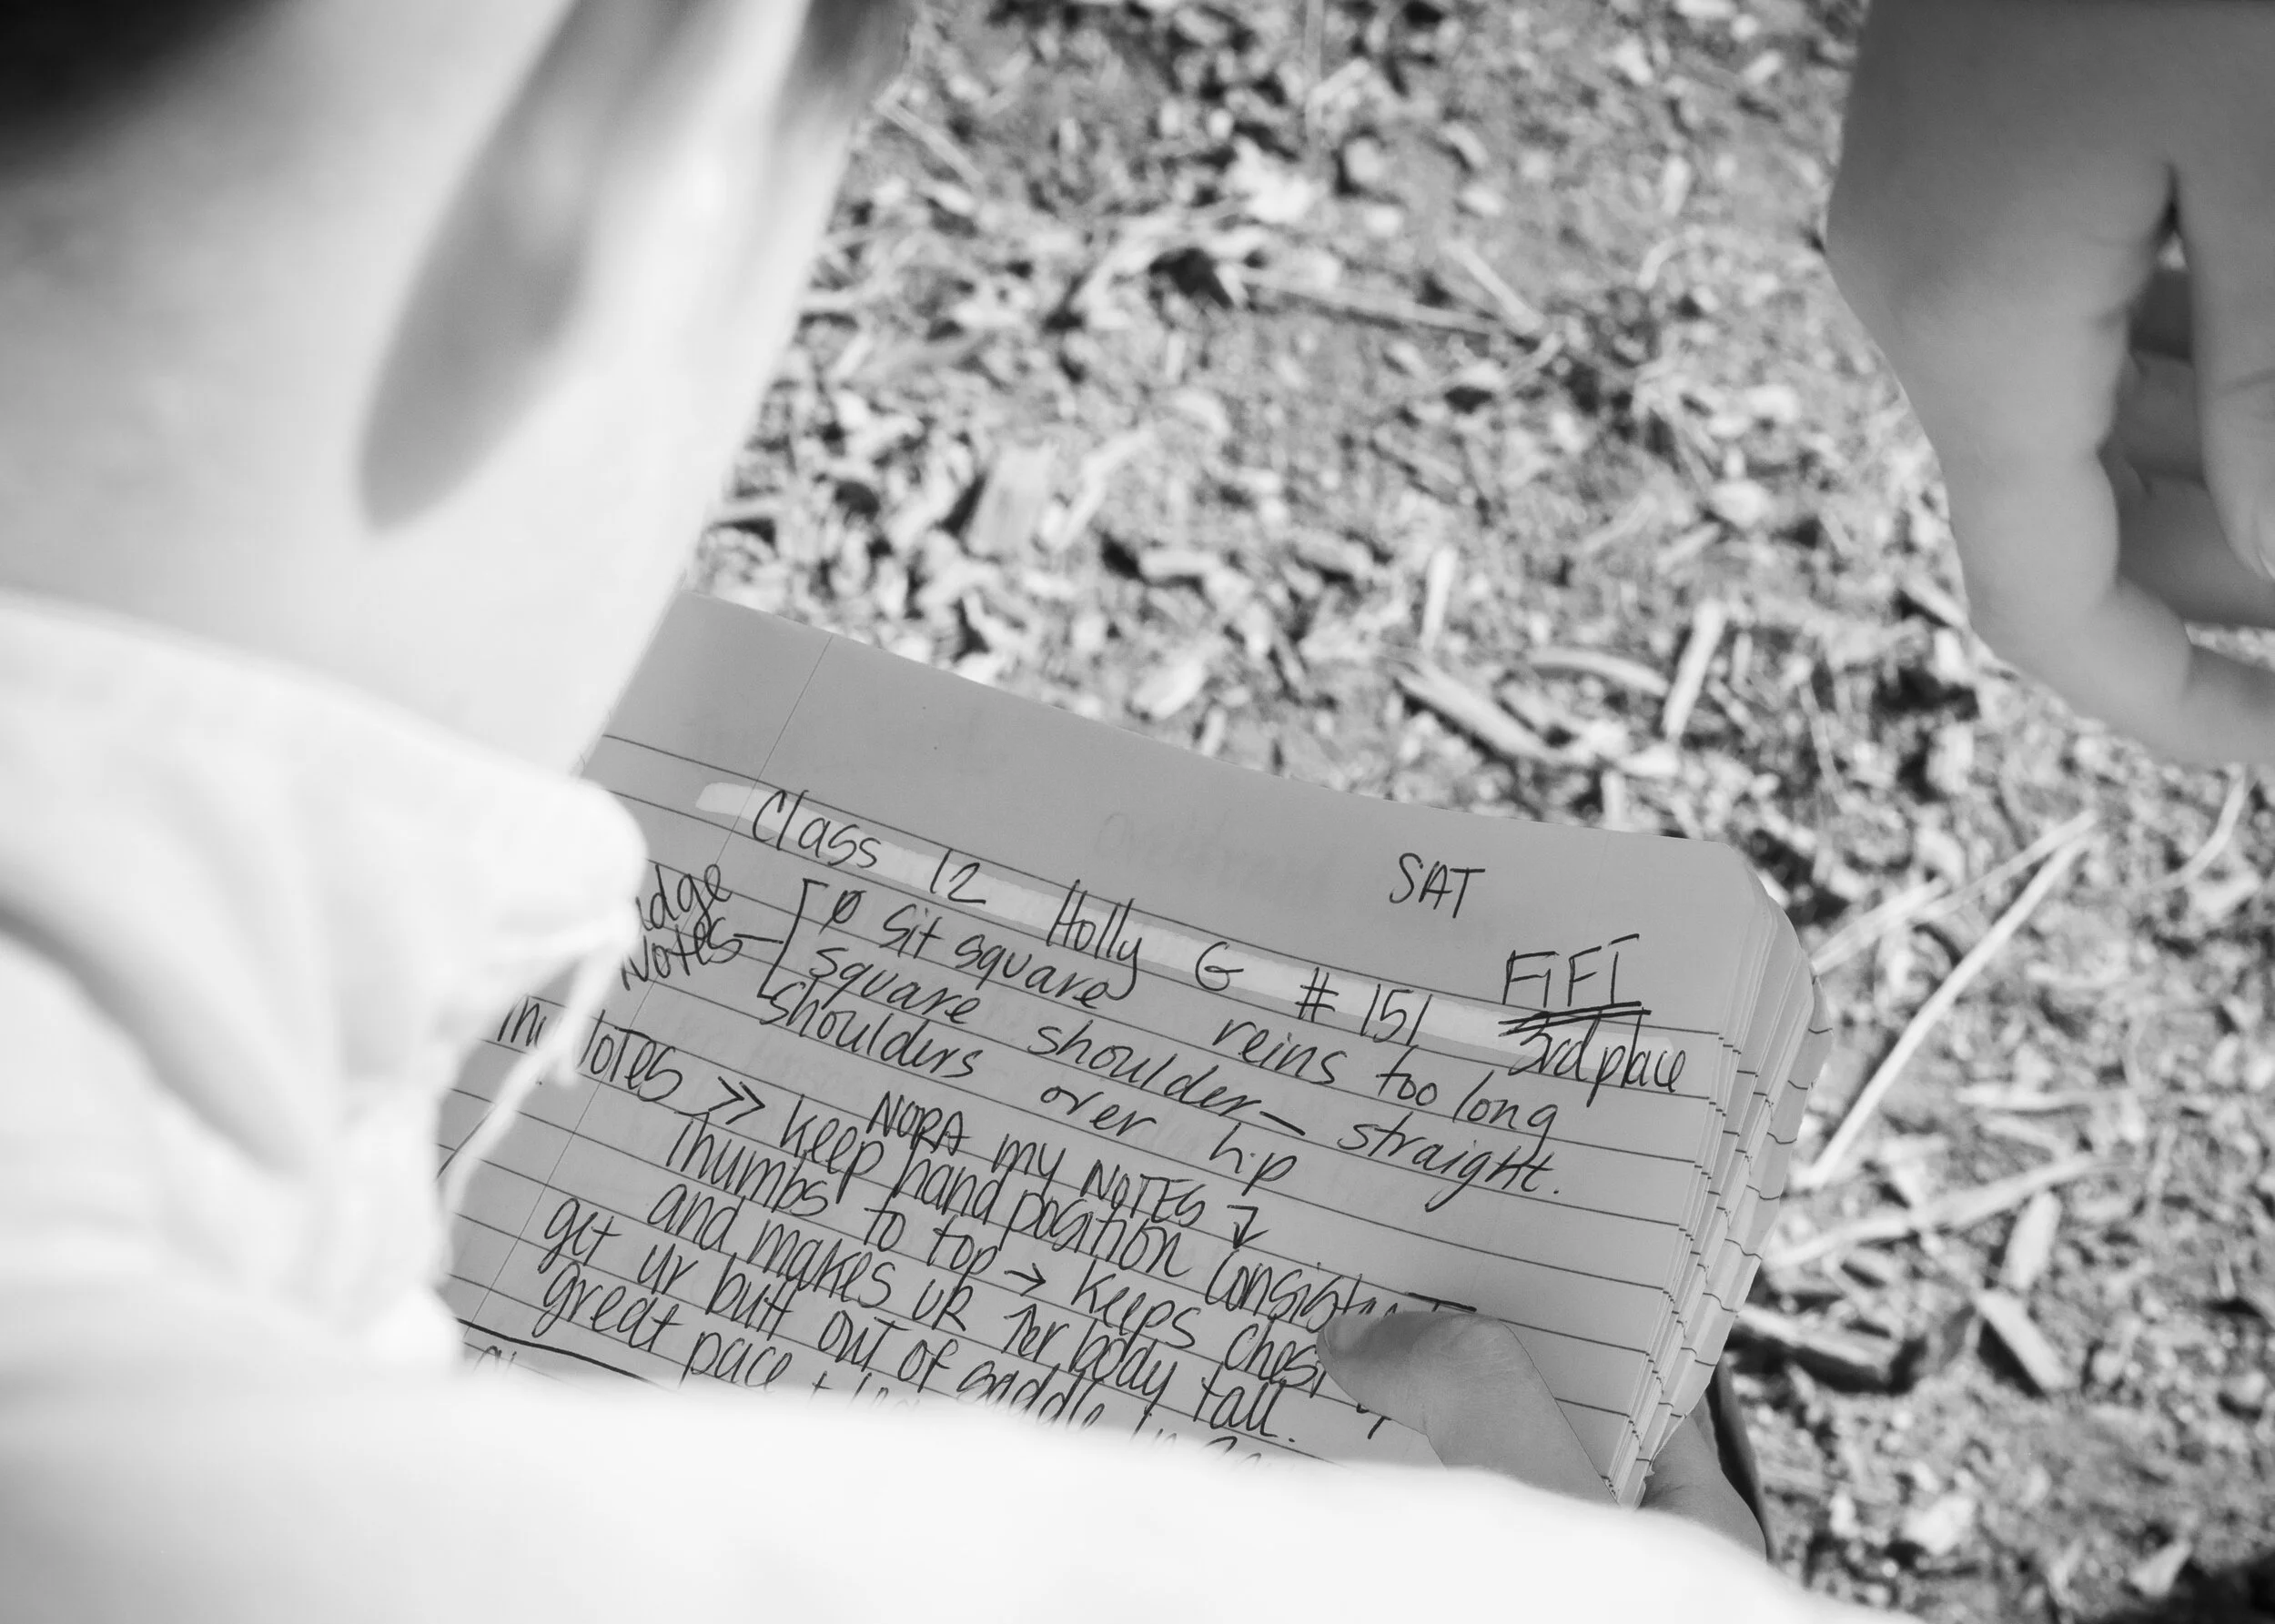 SAT
Class 12 Holly G #151 FiFi
3rd place
Notes
Ø Sit square reins too long
square shoulder - straight.
shoulders over hip
NORA my NOTES ↴
NOTES >> keep hand position consistent
Thumbs to top → keeps chest
and makes ur ↑er body tall.
get ur butt out of saddle in
great pace +